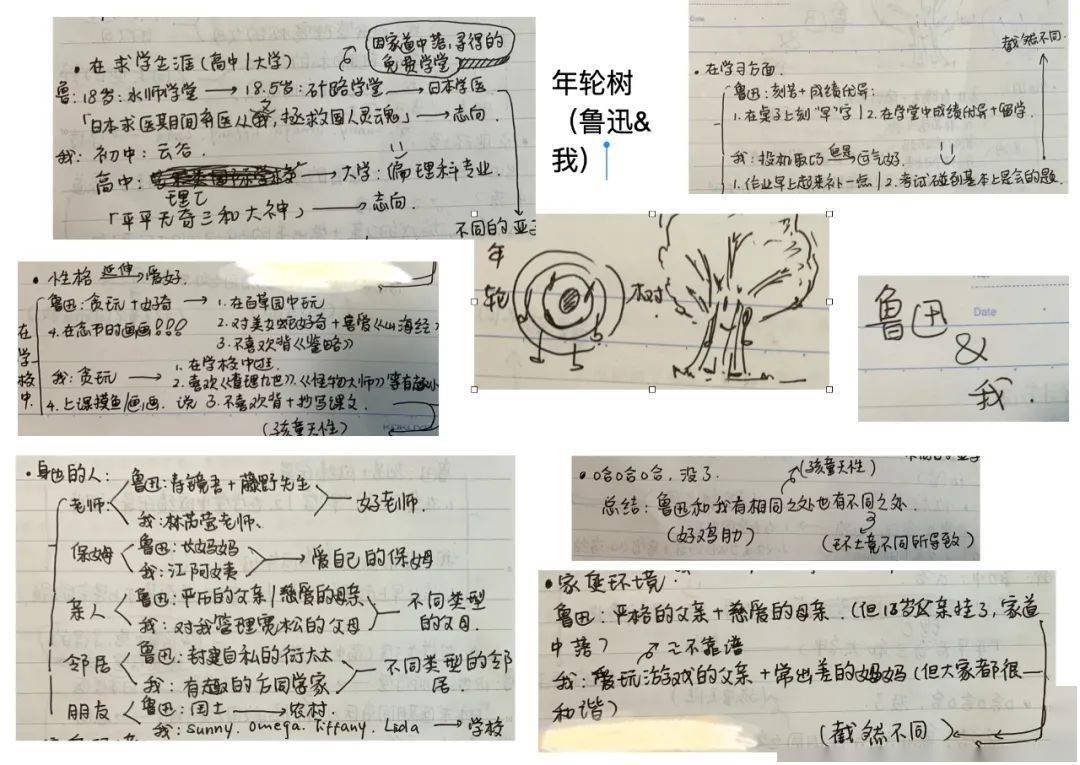 因家道中落,寻得的
免费学堂
• 在求学生涯(高中/大学)
鲁:18岁:水师学堂 → 18.5岁:矿路学堂 → 日本学医
「日本求医期间弃医从文,拯救国人灵魂」→ 志向.
我:初中:云谷.
高中: → 大学:偏理科专业.
理工
「平平无奇三和大神」→ 志向.
不同的
年轮树
(鲁迅&
我)
截然不同.
• 在学习方面.
鲁迅:刻苦+成绩优异:
1.在桌子上刻“早”字 | 2.在学堂中成绩优异+留学.
我:投机取巧 但是→ 运气好.
1.作业早上起来补一点 | 2.考试碰到基本上是会的题.
• 性格 延伸→ 爱好.
在学校中
鲁迅:贪玩+好奇 → 1.在百草园中玩
4.在念书时画画!!! 2.对美女蛇好奇+喜爱《山海经》
3.不喜欢背《鉴略》
我:贪玩 → 1.在学校中玩.
2.喜欢《查理九世》、《怪物大师》等有趣小
4.上课摸鱼/画画. 说 3.不喜欢背+抄写课文.
(孩童天性)
年
轮
树
Date
鲁迅
&
我.
• 身边的人:
老师: 鲁迅:寿镜吾+藤野先生
我:林芮莹老师、
好老师.
保姆 鲁迅:长妈妈
我:江阿姨
爱自己的保姆
亲人 鲁迅:严厉的父亲/慈爱的母亲
我:对我管理宽松的父母
不同类型
的父母.
邻居 鲁迅:封建自私的衍太太
我:有趣的后同学家
不同类型的邻
居.
朋友 鲁迅:闰土 → 农村.
我:sunny. omega. Tiffany. Lida → 学校
• 哈哈哈,没了. (孩童天性)
总结:鲁迅和我有相同之处也有不同之处.
(好鸡肋) (环境不同所导致)
• 家庭环境.
鲁迅:严格的父亲+慈爱的母亲.(但18岁父亲挂了,家道
中落) 不靠谱
我:爱玩游戏的父亲+常出差的妈妈(但大家都很
和谐)
(截然不同)